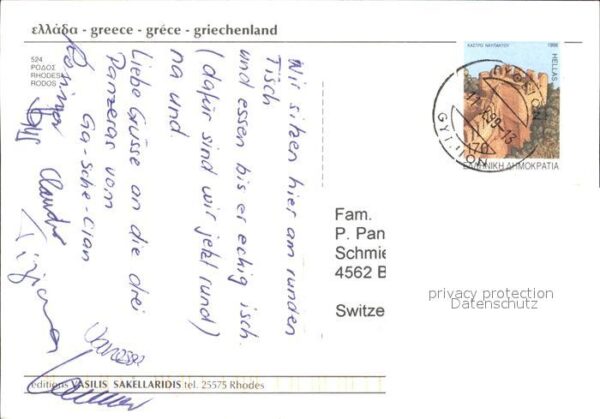 ελλάδα - greece - gréce - griechenland
524
ΡΟΔΟΣ
RHODES
RODOS
ΚΑΣΤΡΟ ΝΑΥΠΑΚΤΟΥ 1998
HELLAS
70
ΕΛΛΗΝΙΚΗ ΔΗΜΟΚΡΑΤΙΑ
ΓΥΘΕΙΟΝ
GYTHION
Mir sitzen hier am runden
Tisch
und essen bis er eckig isch.
(dafür sind wir jetzt rund)
na und.
Liebe Grüsse an die drei
Panzeras vom
Ga-sche-Clan
Claudia
Tiziana
Vanessa
Fam.
P. Pan
Schmie
4562 B
Switze
privacy protection
Datenschutz
editions VASILIS SAKELLARIDIS tel. 25575 Rhodes